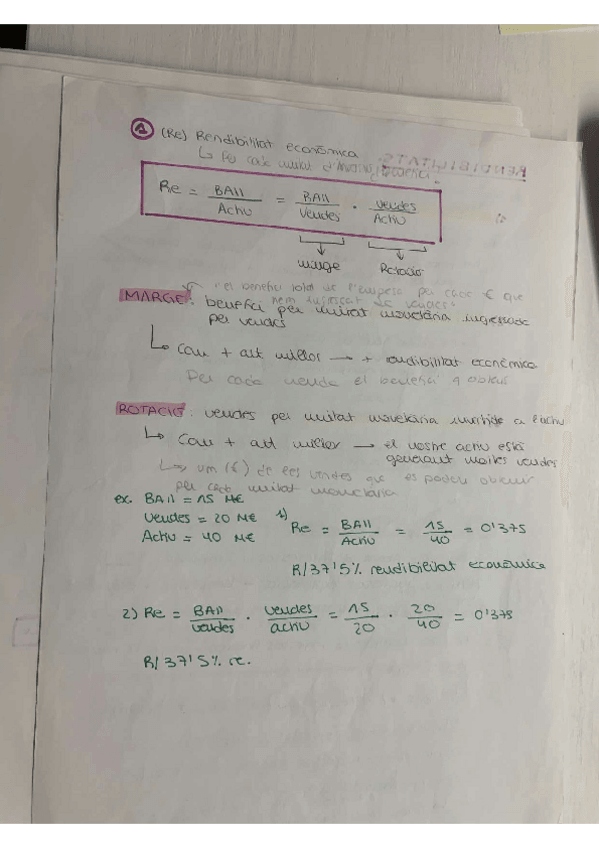 A (Re) Rendibilitat econòmica
↳ Per cada unitat d'
RENDIBILITATS
Re = BAII / Actiu = BAII / Vendes · Vendes / Actiu
marge Rotació
el benefici total de l'empresa per cada € que
MARGE: benefici per unitat monetària ingressada
per vendes
↳ Com + alt millor → + rendibilitat econòmica
Per cada venda el benefici q obtens
ROTACIÓ: vendes per unitat monetària invertida a l'actiu
↳ Com + alt millor → el nostre actiu està
generant moltes vendes
↳ um (€) de les vendes que es poden obtenir
per cada unitat monetària
ex. BAII = 15 M€
Vendes = 20 M€
Actiu = 40 M€
1) Re = BAII / Actiu = 15 / 40 = 0'375
R/ 37'5% rendibilitat econòmica
2) Re = BAII / vendes · vendes / actiu = 15 / 20 · 20 / 40 = 0'375
R/ 37'5% r.e.